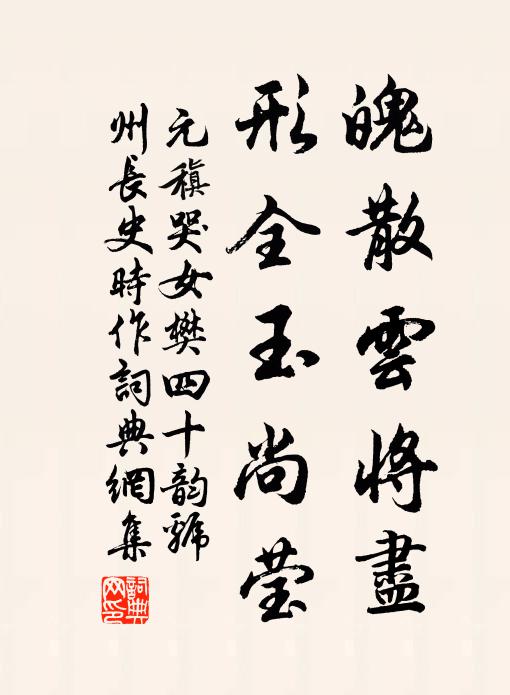 魄散雲將盡
形全玉尚莹
元稹哭女樊四十韵虢
州長史時作詞典網集
詞典网印